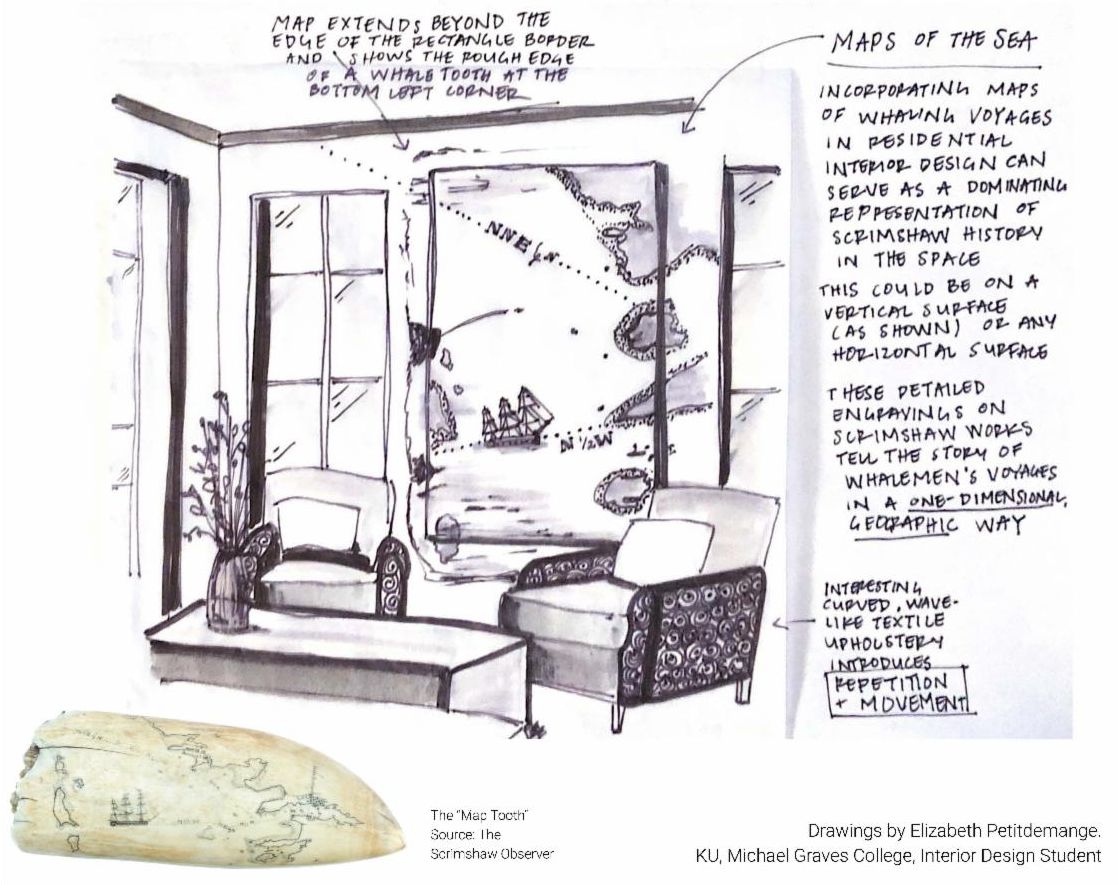 MAP EXTENDS BEYOND THE
EDGE OF THE RECTANGLE BORDER
AND SHOWS THE ROUGH EDGE
OF A WHALE TOOTH AT THE
BOTTOM LEFT CORNER
MAPS OF THE SEA
INCORPORATING MAPS
OF WHALING VOYAGES
IN RESIDENTIAL
INTERIOR DESIGN CAN
SERVE AS A DOMINATING
REPRESENTATION OF
SCRIMSHAW HISTORY
IN THE SPACE
THIS COULD BE ON A
VERTICAL SURFACE
(AS SHOWN) OR ANY
HORIZONTAL SURFACE
THESE DETAILED
ENGRAVINGS ON
SCRIMSHAW WORKS
TELL THE STORY OF
WHALEMEN'S VOYAGES
IN A ONE-DIMENSIONAL,
GEOGRAPHIC WAY
NNE
N ½ W
INTERESTING
CURVED, WAVE-
LIKE TEXTILE
UPHOLSTERY
INTRODUCES
REPETITION
+ MOVEMENT
The "Map Tooth"
Source: The
Scrimshaw Observer
Drawings by Elizabeth Petitdemange.
KU, Michael Graves College, Interior Design Student